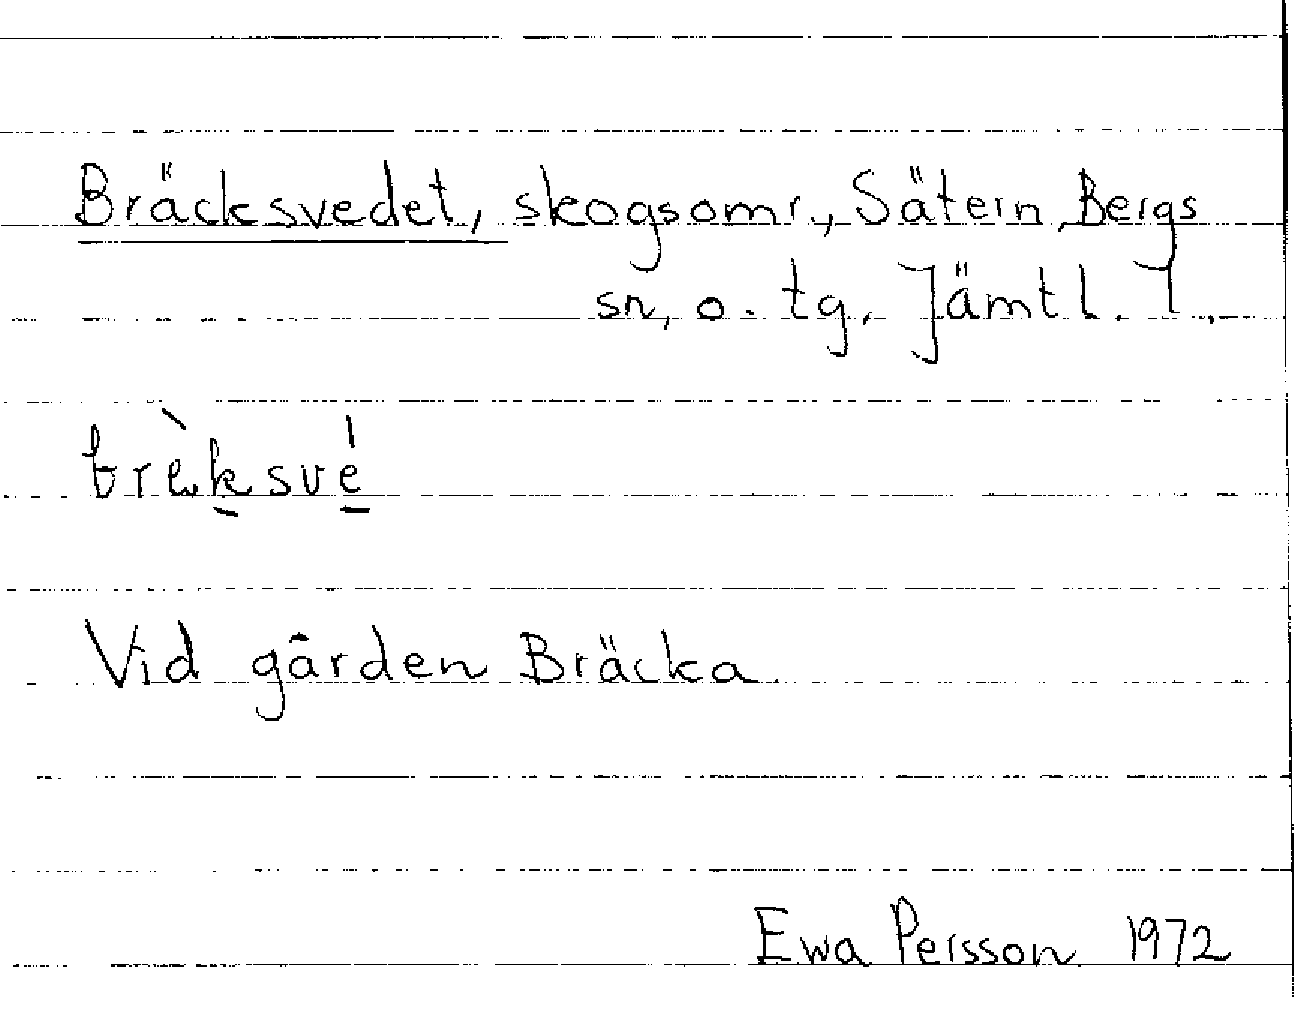 Bräcksvedet, skogsomr., Sätern, Bergs
sn, o. tg, Jämtl. l.
brèksvé
Vid gården Bräcka
Ewa Persson 1972